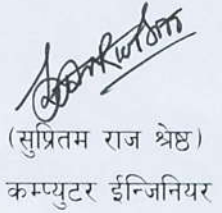 (सुप्रितम राज श्रेष्ठ)
कम्प्युटर ईन्जिनियर